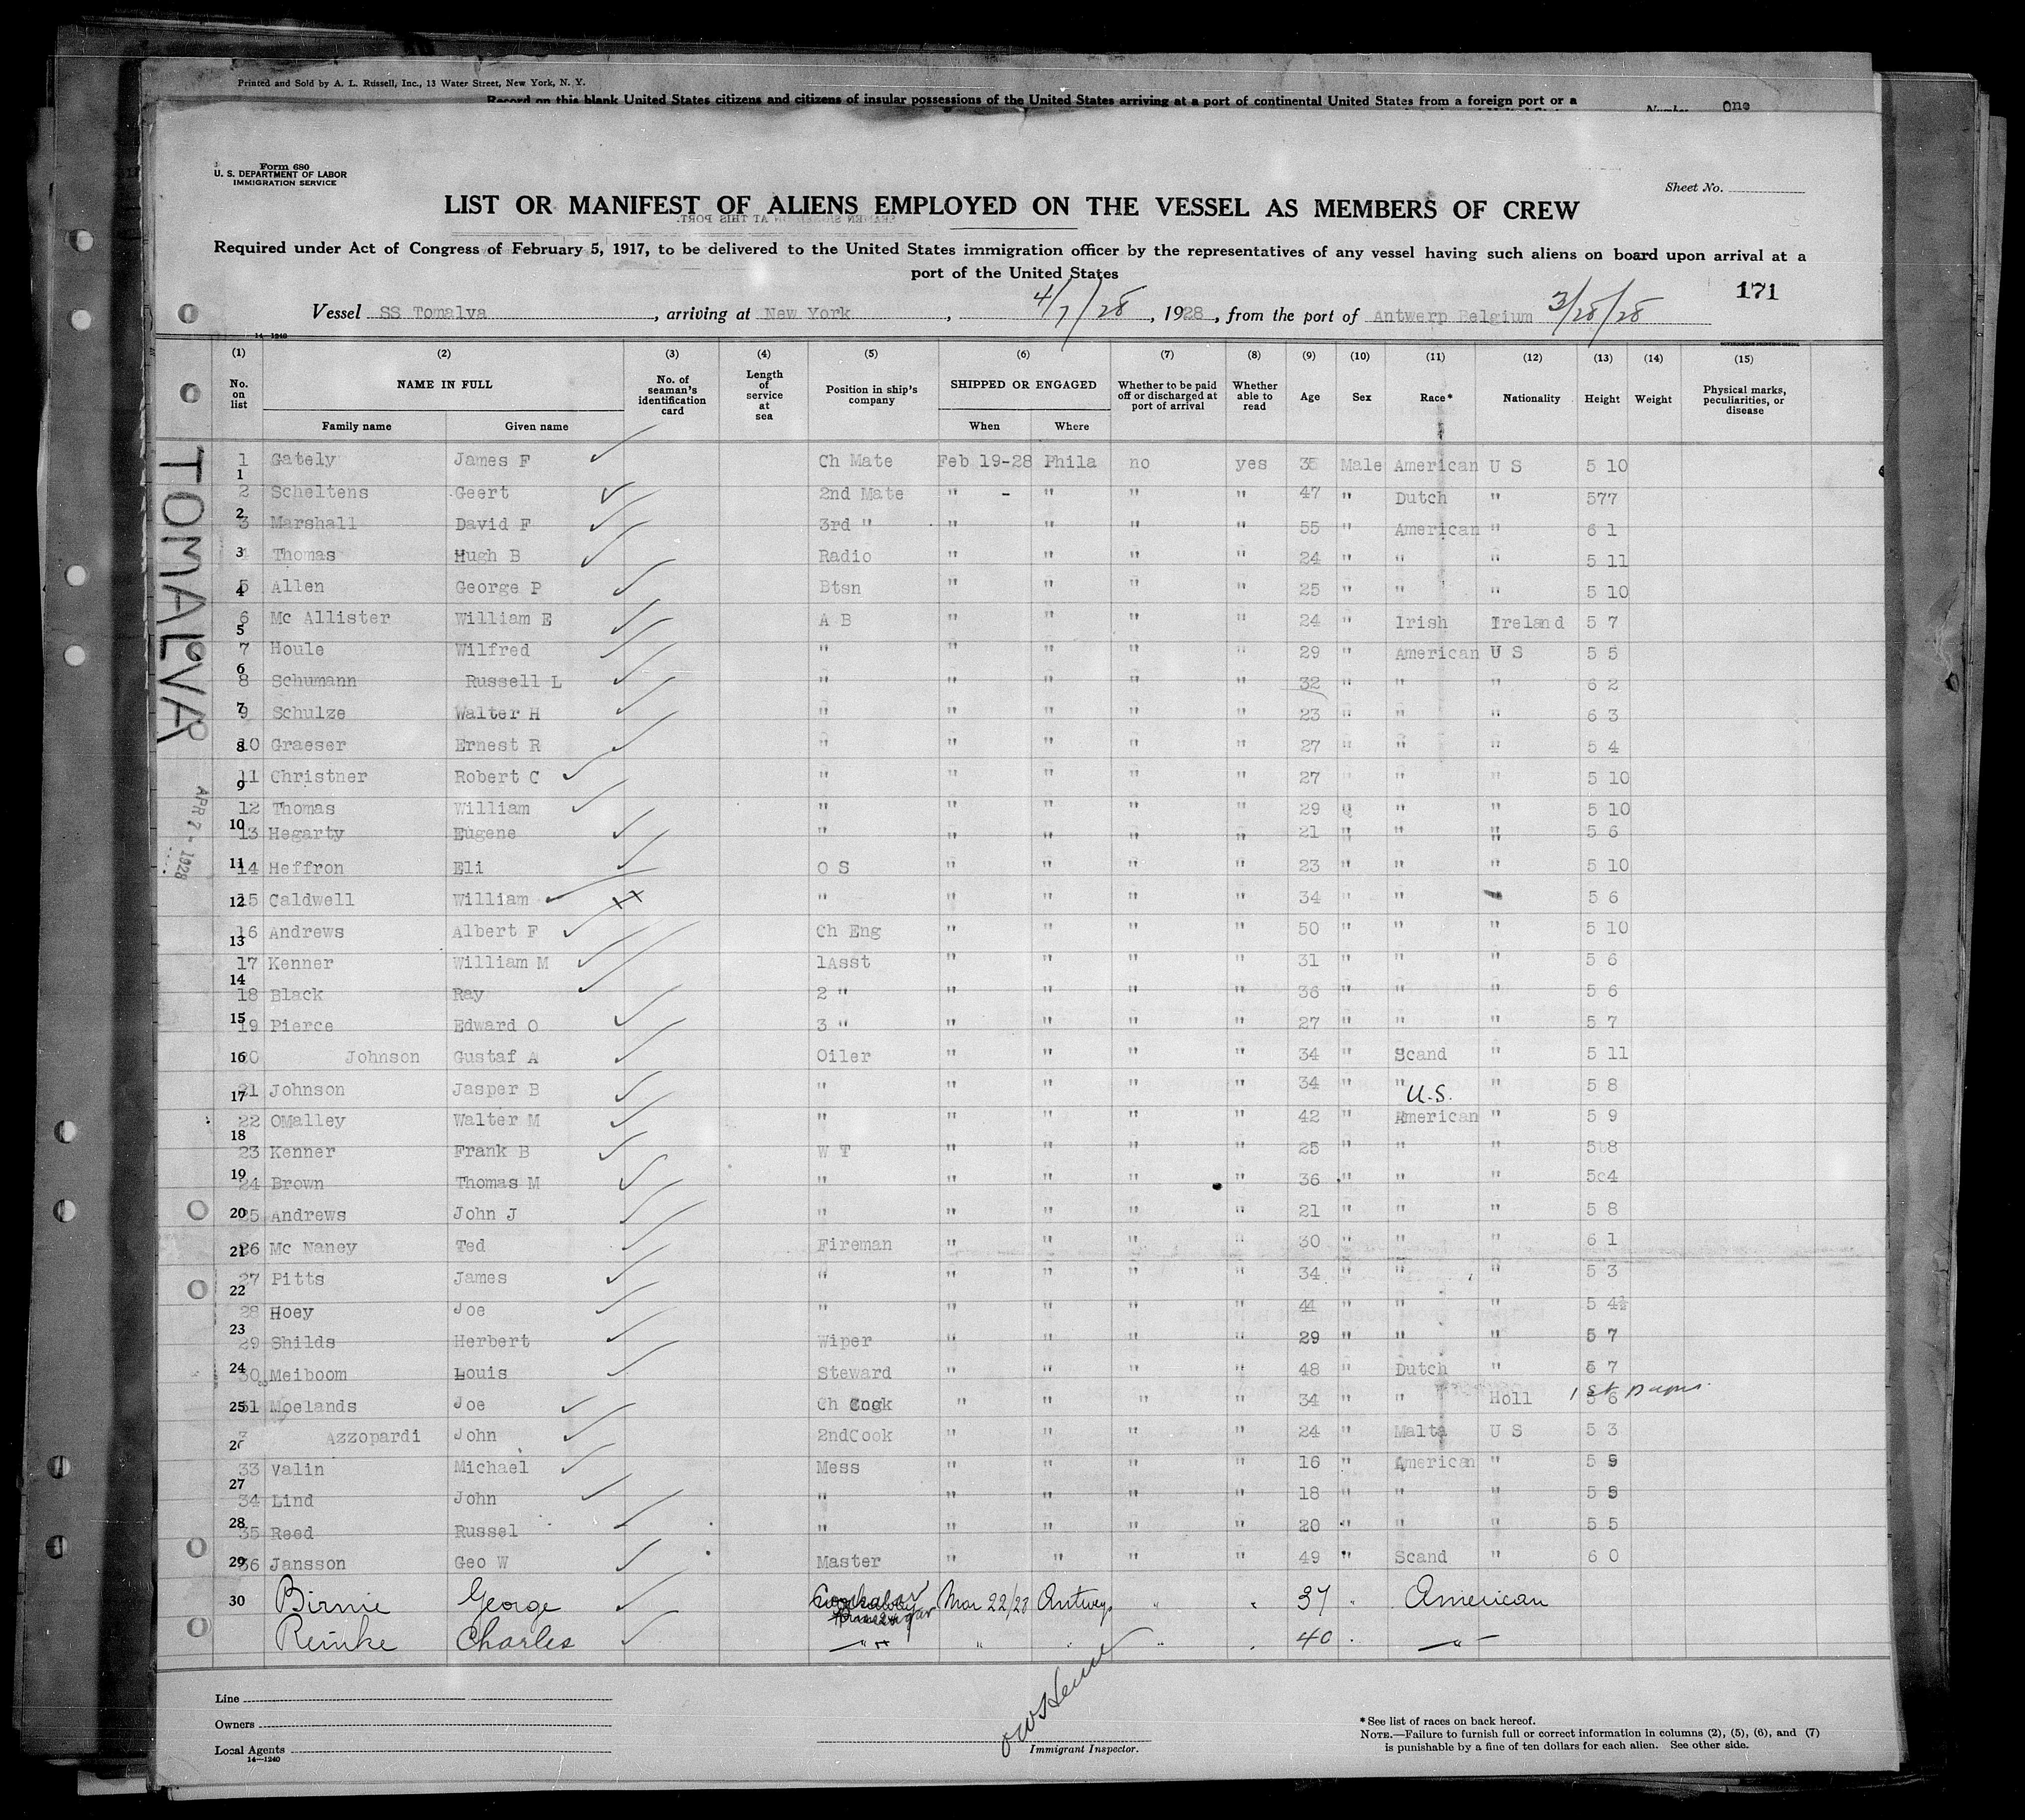 Printed and Sold by A. L. Russell, Inc., 13 Water Street, New York, N. Y.
Record on this blank United States citizens and citizens of insular possessions of the United States arriving at a port of continental United States from a foreign port or a
Number One
Form 680
U. S. DEPARTMENT OF LABOR
IMMIGRATION SERVICE
Sheet No.
LIST OR MANIFEST OF ALIENS EMPLOYED ON THE VESSEL AS MEMBERS OF CREW
Required under Act of Congress of February 5, 1917, to be delivered to the United States immigration officer by the representatives of any vessel having such aliens on board upon arrival at a
port of the United States
171
Vessel SS Tomalva, arriving at New York, 4/7/28, 1928, from the port of Antwerp Belgium 3/28/28
14—1240
(1) (2) (3) (4) (5) (6) (7) (8) (9) (10) (11) (12) (13) (14) (15)
No. on list NAME IN FULL Family name Given name No. of seaman's identification card Length of service at sea Position in ship's company SHIPPED OR ENGAGED When Where Whether to be paid off or discharged at port of arrival Whether able to read Age Sex Race* Nationality Height Weight Physical marks, peculiarities, or disease
TOMALVA
APR 7 - 1928
1 Gately James F Ch Mate Feb 19-28 Phila no yes 35 Male American U S 5 10
2 Scheltens Geert 2nd Mate " - " " " 47 " Dutch " 577
3 Marshall David F 3rd " " " " " 55 " American " 6 1
Thomas Hugh B Radio " " " " 24 " " " 5 11
5 Allen George P Btsn " " " " 25 " " " 5 10
6 Mc Allister William E A B " " " " 24 " Irish Ireland 5 7
7 Houle Wilfred " " " " " 29 " American U S 5 5
8 Schumann Russell L " " " " " 32 " " " 6 2
9 Schulze Walter H " " " " " 23 " " " 6 3
10 Graeser Ernest R " " " " " 27 " " " 5 4
11 Christner Robert C " " " " " 27 " " " 5 10
12 Thomas William " " " " " 29 " " " 5 10
13 Hegarty Eugene " " " " " 21 " " " 5 6
14 Heffron Eli O S " " " " 23 " " " 5 10
15 Caldwell William " " " " " 34 " " " 5 6
16 Andrews Albert F Ch Eng " " " " 50 " " " 5 10
17 Kenner William M 1Asst " " " " 31 " " " 5 6
18 Black Ray 2 " " " " " 36 " " " 5 6
19 Pierce Edward O 3 " " " " " 27 " " " 5 7
20 Johnson Gustaf A Oiler " " " " 34 " Scand " 5 11
21 Johnson Jasper B " " " " " 34 " " U.S. " 5 8
22 OMalley Walter M " " " " " 42 " American " 5 9
23 Kenner Frank B W T " " " " 25 " " " 5 8
24 Brown Thomas M " " " " " 36 " " " 5 4
25 Andrews John J " " " " " 21 " " " 5 8
26 Mc Naney Ted Fireman " " " " 30 " " " 6 1
27 Pitts James " " " " " 34 " " " 5 3
28 Hoey Joe " " " " " 44 " " " 5 4½
29 Shilds Herbert Wiper " " " " 29 " " " 5 7
30 Meiboom Louis Steward " " " " 48 " Dutch " 6 7
31 Moelands Joe Ch Cook " " " " 34 " " Holl 5 6 1st papers
Azzopardi John 2ndCook " " " " 24 " Malta U S 5 3
33 Valin Michael Mess " " " " 16 " American " 5 9
34 Lind John " " " " " 18 " " " 5 8
35 Reed Russel " " " " " 20 " " " 5 5
36 Jansson Geo W Master " " " " 49 " Scand " 6 0
30 Birnie George Workaway Mar 22/28 Antwerp " " 37 " American
Reinke Charles " " " " " 40 " "
Line
Owners
Local Agents
14—1240
Immigrant Inspector.
*See list of races on back hereof.
NOTE.—Failure to furnish full or correct information in columns (2), (5), (6), and (7)
is punishable by a fine of ten dollars for each alien. See other side.